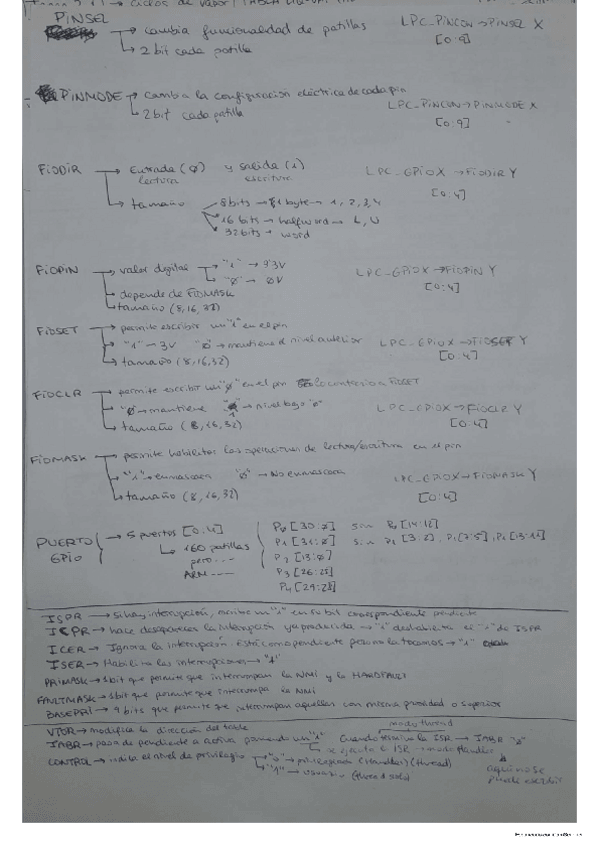 Ciclos de vapor / TABLA
PINSEL → cambia funcionalidad de patillas LPC_PINCON→PINSEL X
→ 2 bit cada patilla [0:9]
PINMODE → cambia la configuración eléctrica de cada pin LPC_PINCON→PINMODE X
→ 2 bit cada patilla [0:9]
FIODIR → Entrada (Ø) y salida (1) LPC_GPIOX→FIODIR Y
lectura escritura [0:4]
→ tamaño → 8 bits → 1 byte → 1, 2, 3, 4
→ 16 bits → halfword → L, U
→ 32 bits → word
FIOPIN → valor digital → "1" → 3'3V LPC_GPIOX→FIOPIN Y
→ "Ø" → ØV [0:4]
→ depende de FIOMASK
→ tamaño (8,16,32)
FIOSET → permite escribir un "1" en el pin
→ "1" → 3V "Ø" → mantiene el nivel anterior LPC_GPIOX→FIOSET Y
→ tamaño (8,16,32) [0:4]
FIOCLR → permite escribir un "Ø" en el pin lo contrario a FIOSET
→ "Ø" → mantiene "1" → nivel bajo "Ø" LPC_GPIOX→FIOCLR Y
→ tamaño (8,16,32) [0:4]
FIOMASK → permite habilitar las operaciones de lectura/escritura en el pin
→ "1" → enmascara "Ø" → No enmascara LPC_GPIOX→FIOMASK Y
→ tamaño (8,16,32) [0:4]
PUERTO GPIO → 5 puertos [0:4] P0 [30:Ø] sin P0 [14:12]
→ 160 patillas P1 [31:Ø] sin P1 [3:2], P1 [7:5], P1 [13:11]
pero.... P2 [13:Ø]
P3 [26:25]
P4 [29:28]
ISPR → Si hay interrupción, escribe un "1" en su bit correspondiente pendiente
ICPR → hace desaparecer la interrupción ya producida → "1" deshabilita el "1" de ISPR
ICER → Ignora la interrupción. Está como pendiente pero no la tocamos → "1"
ISER → Habilita las interrupciones → "1"
PRIMASK → 1 bit que permite que interrumpan la NMI y la HARDFAULT
FAULTMASK → 1 bit que permite que interrumpa la NMI
BASEPRI → 9 bits que permite que interrumpan aquellas con misma prioridad o superior
VTOR → modifica la dirección del table modo thread
IABR → pasa de pendiente a activa poniendo un "1" Cuando termina la ISR → IABR "Ø"
se ejecuta el ISR → modo Handler
CONTROL → indica el nivel de privilegio → "0" → privilegiado (Handler) (thread)
→ "1" → usuario (thread solo)
aquí no se puede escribir